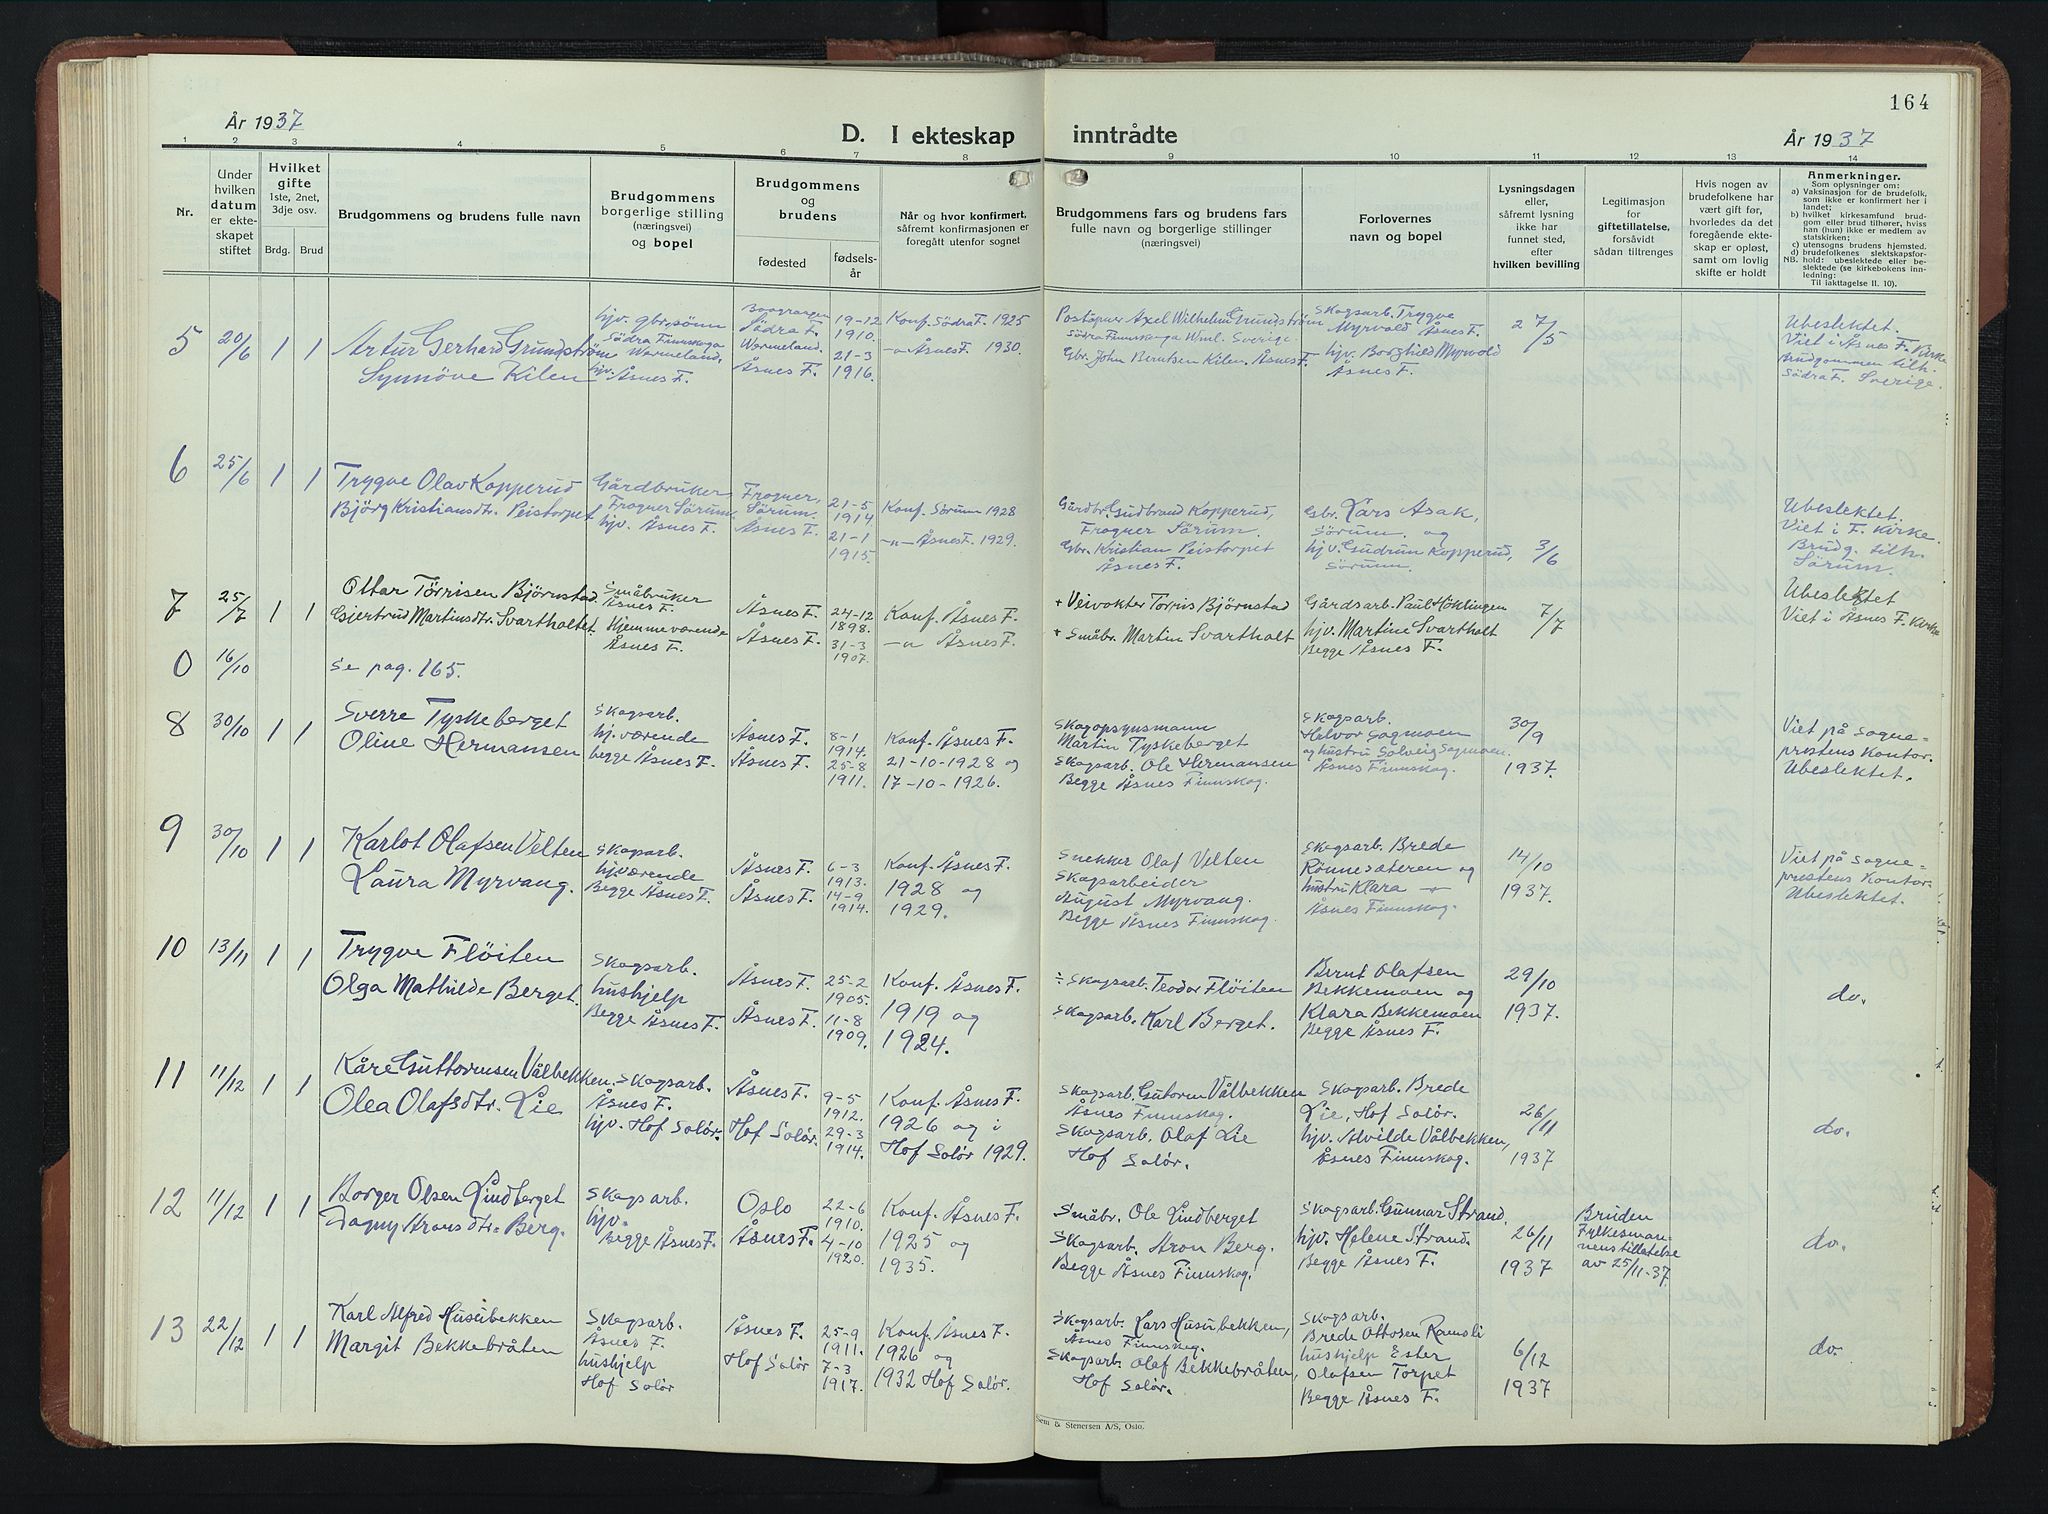 164
År 1937
D. I ekteskap inntrådte
År 1937
1 2 3 4 5 6 7 8 9 10 11 12 13 14
Nr.
Under
hvilken
datum
er ekte-
skapet
stiftet
Hvilket
gifte
1ste, 2net,
3dje osv.
Brdg. Brud
Brudgommens og brudens fulle navn
Brudgommens
borgerlige stilling
(næringsvei)
og bopel
Brudgommens
og
brudens
fødested
fødsels-
år
Når og hvor konfirmert,
såfremt konfirmasjonen er
foregått utenfor sognet
Brudgommens fars og brudens fars
fulle navn og borgerlige stillinger
(næringsvei)
Forlovernes
navn og bopel
Lysningsdagen
eller,
såfremt lysning
ikke har
funnet sted,
efter
hvilken bevilling
Legitimasjon
for
giftetillatelse,
forsåvidt
sådan tiltrenges
Hvis nogen av
brudefolkene har
vært gift før,
hvorledes da det
foregående ekte-
skap er opløst,
samt om lovlig
skifte er holdt
Anmerkninger.
Som oplysninger om:
a) Vaksinasjon for de brudefolk,
som ikke er konfirmert her i
landet;
b) hvilket kirkesamfund brud-
gom eller brud tilhører, hviss
han (hun) ikke er medlem av
statskirken;
c) utensogns brudens hjemsted.
d) brudefolkenes slektskapsfor-
NB. hold: ubeslektede eller be-
slektede (se kirkebokens inn-
ledning:
Til iakttagelse II. 10).
5 20/6 1 1
Artur Gerhard Grundström
Synnöve Kilen
hjv. gbr. sønn
Södra Finnskoga
Wermeland.
hjv. Åsnes F.
Södra F.
Wermeland.
Åsnes F.
19-12
1910.
21-3
1916.
Konf. Södra F. 1925
-"- Åsnes F. 1930.
Poståpner Axel Wilhelm Grundström
Södra Finnskoga Wml. Sverige
Gbr. John Berntsen Kilen, Åsnes F.
Skogsarb. Trygve
Myrvold Åsnes F.
hjv. Borghild Myrvold
Åsnes F.
27/5
Ubeslektet.
Viet i Åsnes F. Kirke
Brudgommen tilh.
Södra F. Sverige.
6 25/6 1 1
Trygve Olav Kopperud
Björg Kristiansdtr. Peistorpet
Gårdbruker
Frogner Sørum,
hjv. Åsnes F.
Frogner,
Sørum.
Åsnes F.
21-5
1914
21-1
1915.
Konf. Sörum 1928
-"- Åsnes F. 1929.
Gårdbr. Gudbrand Kopperud,
Frogner Sörum.
Gbr. Kristian Peistorpet
Åsnes F.
Gbr. Lars Asak,
Sörum. og
hjv. Gudrun Kopperud,
Sörum.
3/6
Ubeslektet.
Viet i F. Kirke.
Brudg. tilh.
Sörum.
7 25/7 1 1
Ottar Törrisen Björnstad.
Gjertrud Martinsdtr. Svartholtet.
Småbruker
Åsnes F.
Hjemmeværende
Åsnes F.
Åsnes F.
Åsnes F.
24-12
1898.
31-3
1907.
Konf. Åsnes F.
-"- Åsnes F.
+ Veivokter Torris Björnstad
+ Småbr. Martin Svartholt
Gårdsarb. Paul Höklingen
hjv. Martine Svartholt
Begge Åsnes F.
7/7
Ubeslektet
Viet i Åsnes F. Kirke
0 16/10
Se pag. 165.
8 30/10 1 1
Sverre Tyskeberget
Oline Hermansen
Skogsarb.
hj.værende
begge Åsnes F.
Åsnes F.
Åsnes F.
8-1
1914.
25-8
1911.
Konf. Åsnes F.
21-10-1928 og
17-10-1926.
Skogopsynsmann
Martin Tyskeberget
Skogsarb. Ole Hermansen
Begge Åsnes Finnskog.
Skogsarb.
Helvor Sagmoen
og hustru Solveig Sagmoen.
Åsnes Finnskog.
30/9
1937.
Viet på sogne-
prestens Kontor.
Ubeslektet.
9 30/10 1 1
Karlot Olafsen Velten
Laura Myrvang.
Skogsarb.
hjværende
Begge Åsnes F.
Åsnes F.
Åsnes F.
6-3
1913.
14-9
1914.
Konf. Åsnes F.
1928 og
1929.
Snekker Olaf Velten
Skogsarbeider
August Myrvang.
Begge Åsnes Finnskog.
Skogsarb. Brede
Rönnesæteren og
hustru Klara -"-
Åsnes Finnskog.
14/10
1937.
Viet på sogne-
prestens Kontor.
Ubeslektet.
10 13/11 1 1
Trygve Flöiten
Olga Mathilde Berget.
Skogsarb.
hushjelp
Begge Åsnes F.
Åsnes F.
Åsnes F.
25-2
1905.
11-8
1909.
Konf. Åsnes F.
1919 og
1924.
÷ Skogsarb. Teodor Flöiten
Skogsarb. Karl Berget.
Bernt Olafsen
Bekkemoen og
Klara Bekkemoen
Begge Åsnes F.
29/10
1937.
do.
11 11/12 1 1
Kåre Guttormsen Vålbekken.
Olea Olafsdtr. Lie
Skogsarb.
Åsnes F.
hjv. Hof Solör.
Åsnes F.
Hof Solör.
9-5
1912.
29-3
1914.
Konf. Åsnes F.
1926 og i
Hof Solör 1929.
Skogsarb. Gutorm Vålbekken
Åsnes Finnskog.
Skogsarb. Olaf Lie
Hof Solör.
Skogsarb. Brede
Lie, Hof Solör.
hjv. Alvilde Vålbekken,
Åsnes Finnskog.
26/11
1937
do.
12 11/12 1 1
Borger Olsen Lindberget
Dagny Aronsdtr. Berg.
Skogsarb.
hjv.
Begge Åsnes F.
Oslo
Åsnes F.
22-6
1910.
4-10
1920.
Konf. Åsnes F.
1925 og
1935.
Småbr. Ole Lindberget
Skogsarb. Aron Berg.
Begge Åsnes Finnskog.
Skogsarb. Gunnar Strand,
hjv. Helene Strand.
Begge Åsnes F.
26/11
1937
Bruden
Fylkesman-
nens tillatelse
av 25/11-37
do.
13 22/12 1 1
Karl Alfred Husubekken
Margit Bekkebråten
Skogsarb.
Åsnes F.
hushjelp
Hof Solör
Åsnes F.
Hof Solör
25-9
1911.
7-3
1917.
Konf. Åsnes F.
1926 og
1932 Hof Solör.
Skogsarb. Lars Husubekken,
Åsnes Finnskog.
Skogsarb. Olaf Bekkebråten,
Hof Solör.
Skogsarb.
Brede Ottosen Ramsli
hushjelp Ester
Olafsen Torpet
Begge Åsnes F.
6/12
1937
do.
Sem & Stenersen A/S, Oslo.